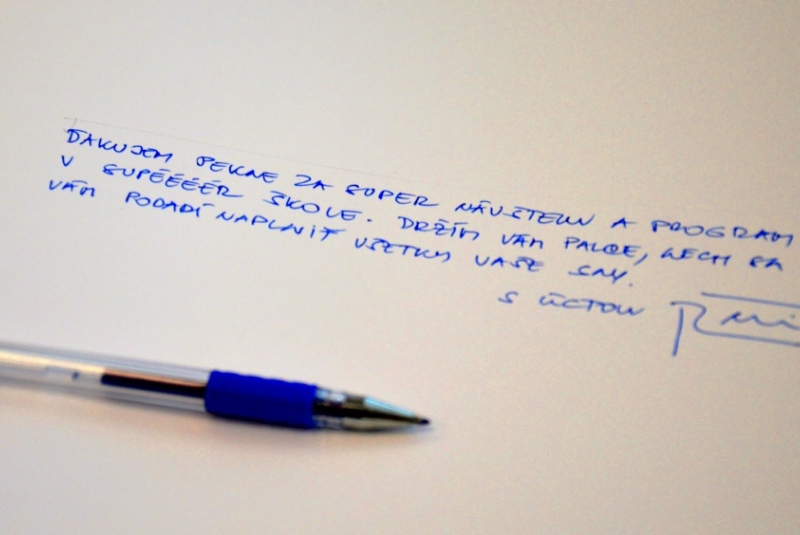 ĎAKUJEM PEKNE ZA SUPER NÁVŠTEVU A PROGRAM
V SUPÉÉÉÉR ŠKOLE. DRŽÍM VÁM PALCE, NECH SA
VÁM PODARÍ NAPLNIŤ VŠETKY VAŠE SNY.
S ÚCTOU